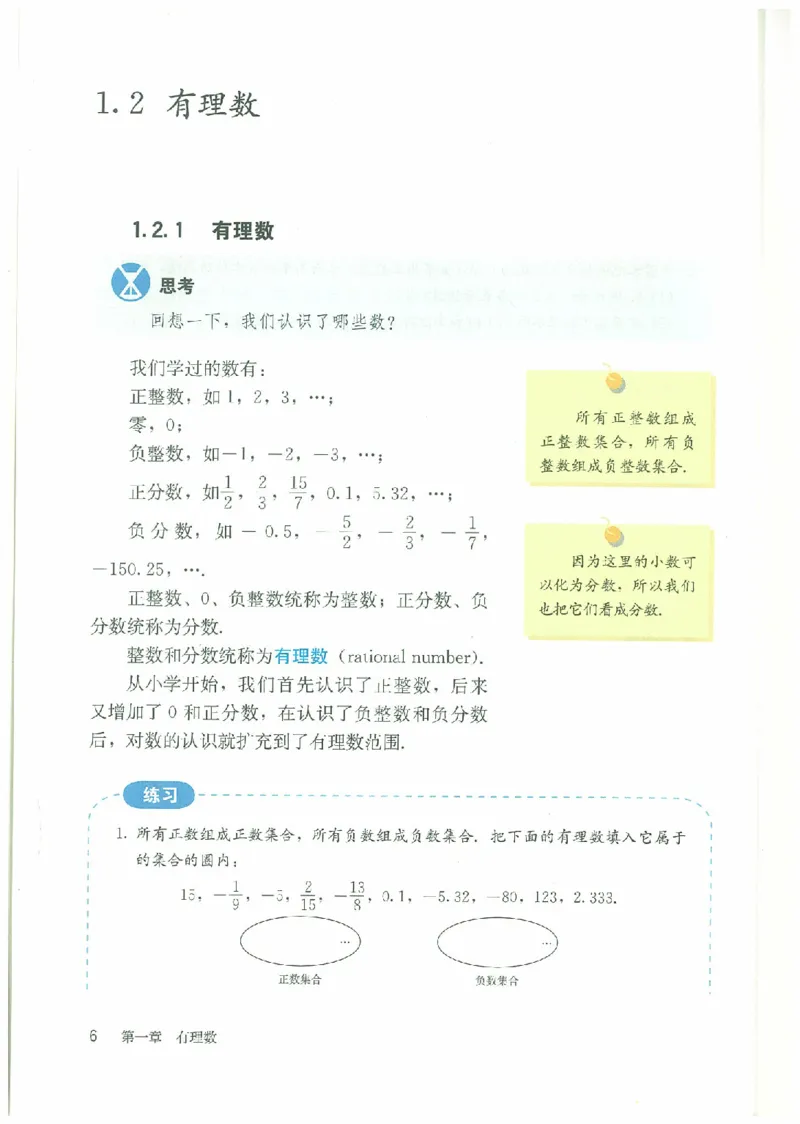 1.2 有理数
1.2.1 有理数
思考
回想一下，我们认识了哪些数？
我们学过的数有：
正整数，如 1，2，3，…；
零，0；
负整数，如－1，－2，－3，…；
正分数，如1/2，2/3，15/7，0.1，5.32，…；
负分数，如－0.5，－5/2，－2/3，－1/7，
－150.25，….
正整数、0、负整数统称为整数；正分数、负
分数统称为分数.
整数和分数统称为有理数（rational number).
从小学开始，我们首先认识了正整数，后来
又增加了 0 和正分数，在认识了负整数和负分数
后，对数的认识就扩充到了有理数范围.
所有正整数组成
正整数集合，所有负
整数组成负整数集合.
因为这里的小数可
以化为分数，所以我们
也把它们看成分数.
练习
1. 所有正数组成正数集合，所有负数组成负数集合. 把下面的有理数填入它属于
的集合的圈内：
15，－1/9，－5，2/15，－13/8，0.1，－5.32，－80，123，2.333.
… …
正数集合 负数集合
6 第一章 有理数